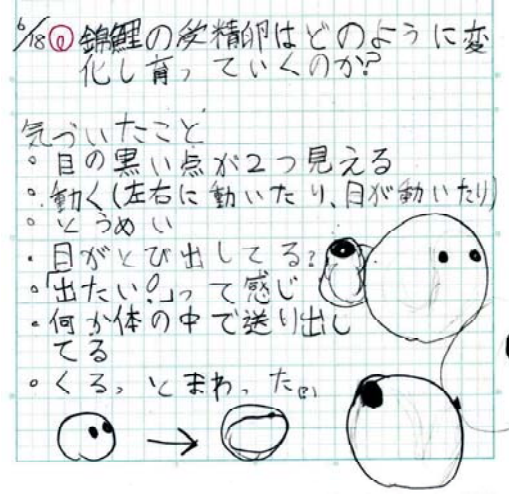 6/18 め 錦鯉の受精卵はどのように変
化し育っていくのか?
気づいたこと
・目の黒い点が2つ見える
・動く(左右に動いたり、目が動いたり)
・とうめい
・目がとび出してる?
・「出たい!」って感じ
・何か体の中で送り出し
てる
・くるっとまわった。